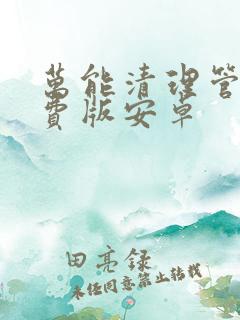 萬能清理管
費版安卓
田亮録
未经同意禁止转载